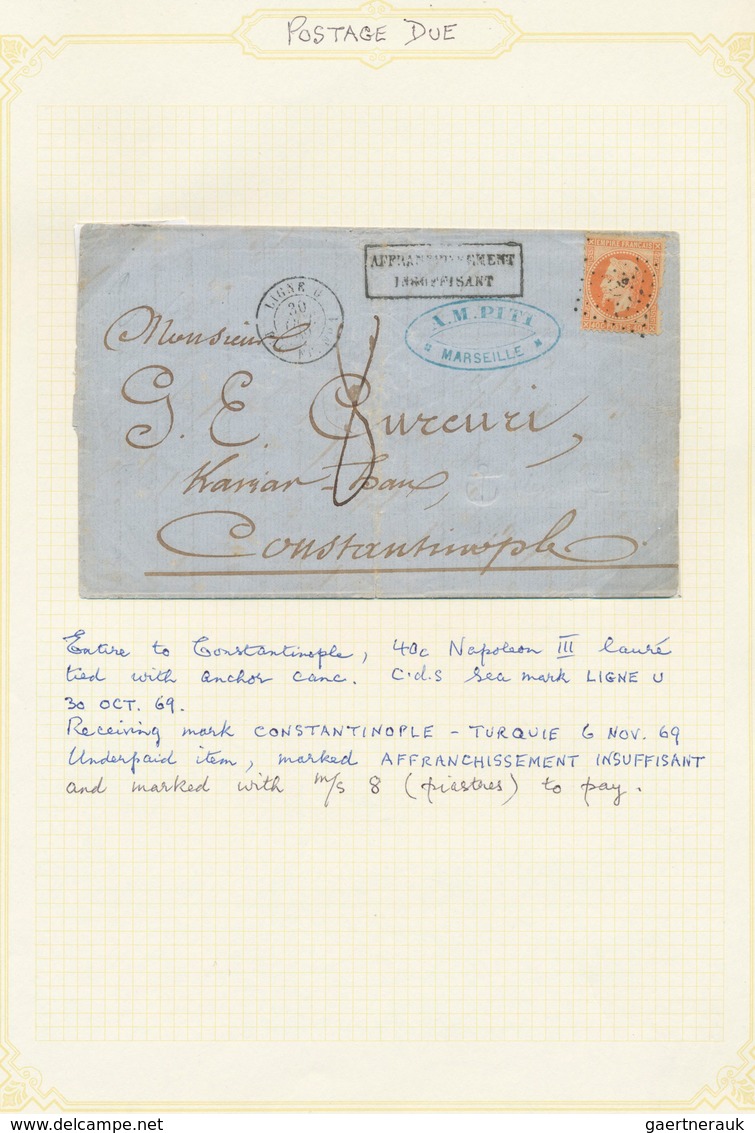 POSTAGE DUE
EMPIRE FRANÇAIS
AFFRANCHISSEMENT
INSUFFISANT
LIGNE U
30
A.M. PITI
MARSEILLE
Monsieur
G. E. Curcuri,
Kaviar-han,
8
Constantinople
Entire to Constantinople, 40c Napoleon III lauré
tied with anchor canc. c.d.s sea mark LIGNE U
30 OCT. 69.
Receiving mark CONSTANTINOPLE - TURQUIE 6 NOV. 69
Underpaid item, marked AFFRANCHISSEMENT INSUFFISANT
and marked with m/s 8 (piastres) to pay.
gaertnerauk